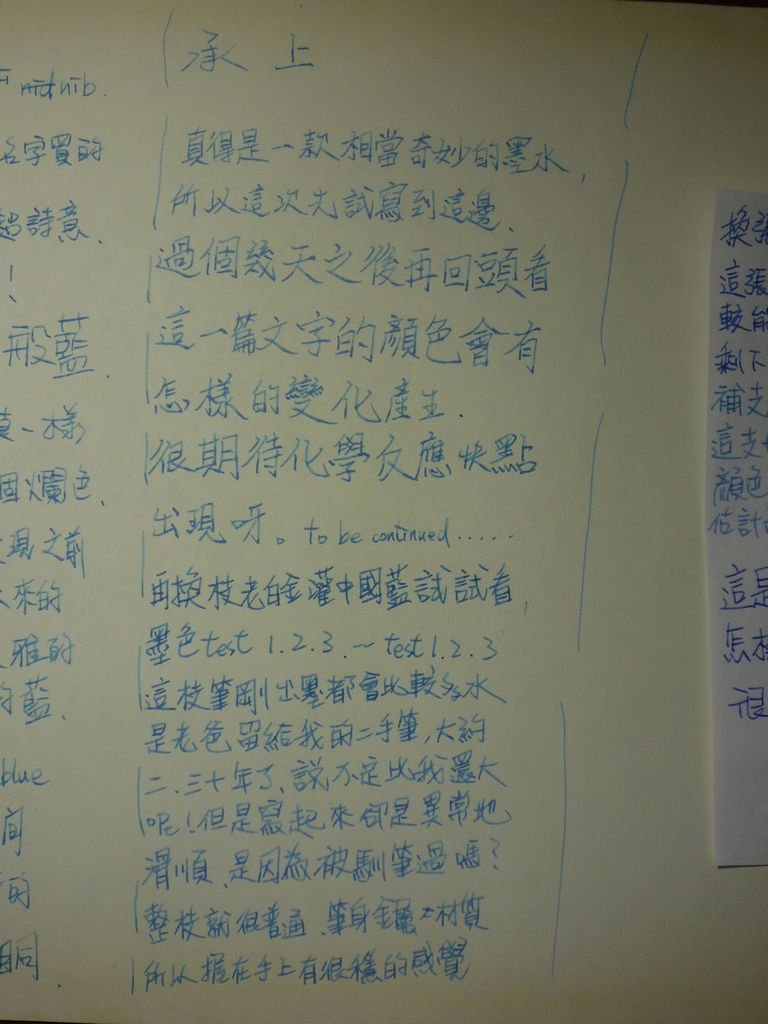 mid nib.
名字買的
超詩意.
!
一般藍.
莫一樣
個爛色.
現之前
來的
雅的
的藍.
blue
間
的
相同.
承上
真得是一款相當奇妙的墨水,
所以這次先試寫到這邊.
過個幾天之後再回頭看
這一篇文字的顏色會有
怎樣的變化產生.
很期待化學反應快點
出現呀。to be continued.....
再換枝老白金灌中國藍試試看,
墨色test 1.2.3.~test 1.2.3
這枝筆剛出墨都會比較多水
是老爸留給我的二手筆,大約
二.三十年了,說不定比我還大
呢!但是寫起來卻是異常地
滑順,是因為被馴筆過嗎?
整枝就很普通,筆身金屬材質
所以握在手上有很穩的感覺
換張
這張
較能
剩下
補支
這支
顏色
估計
這是
怎樣
很